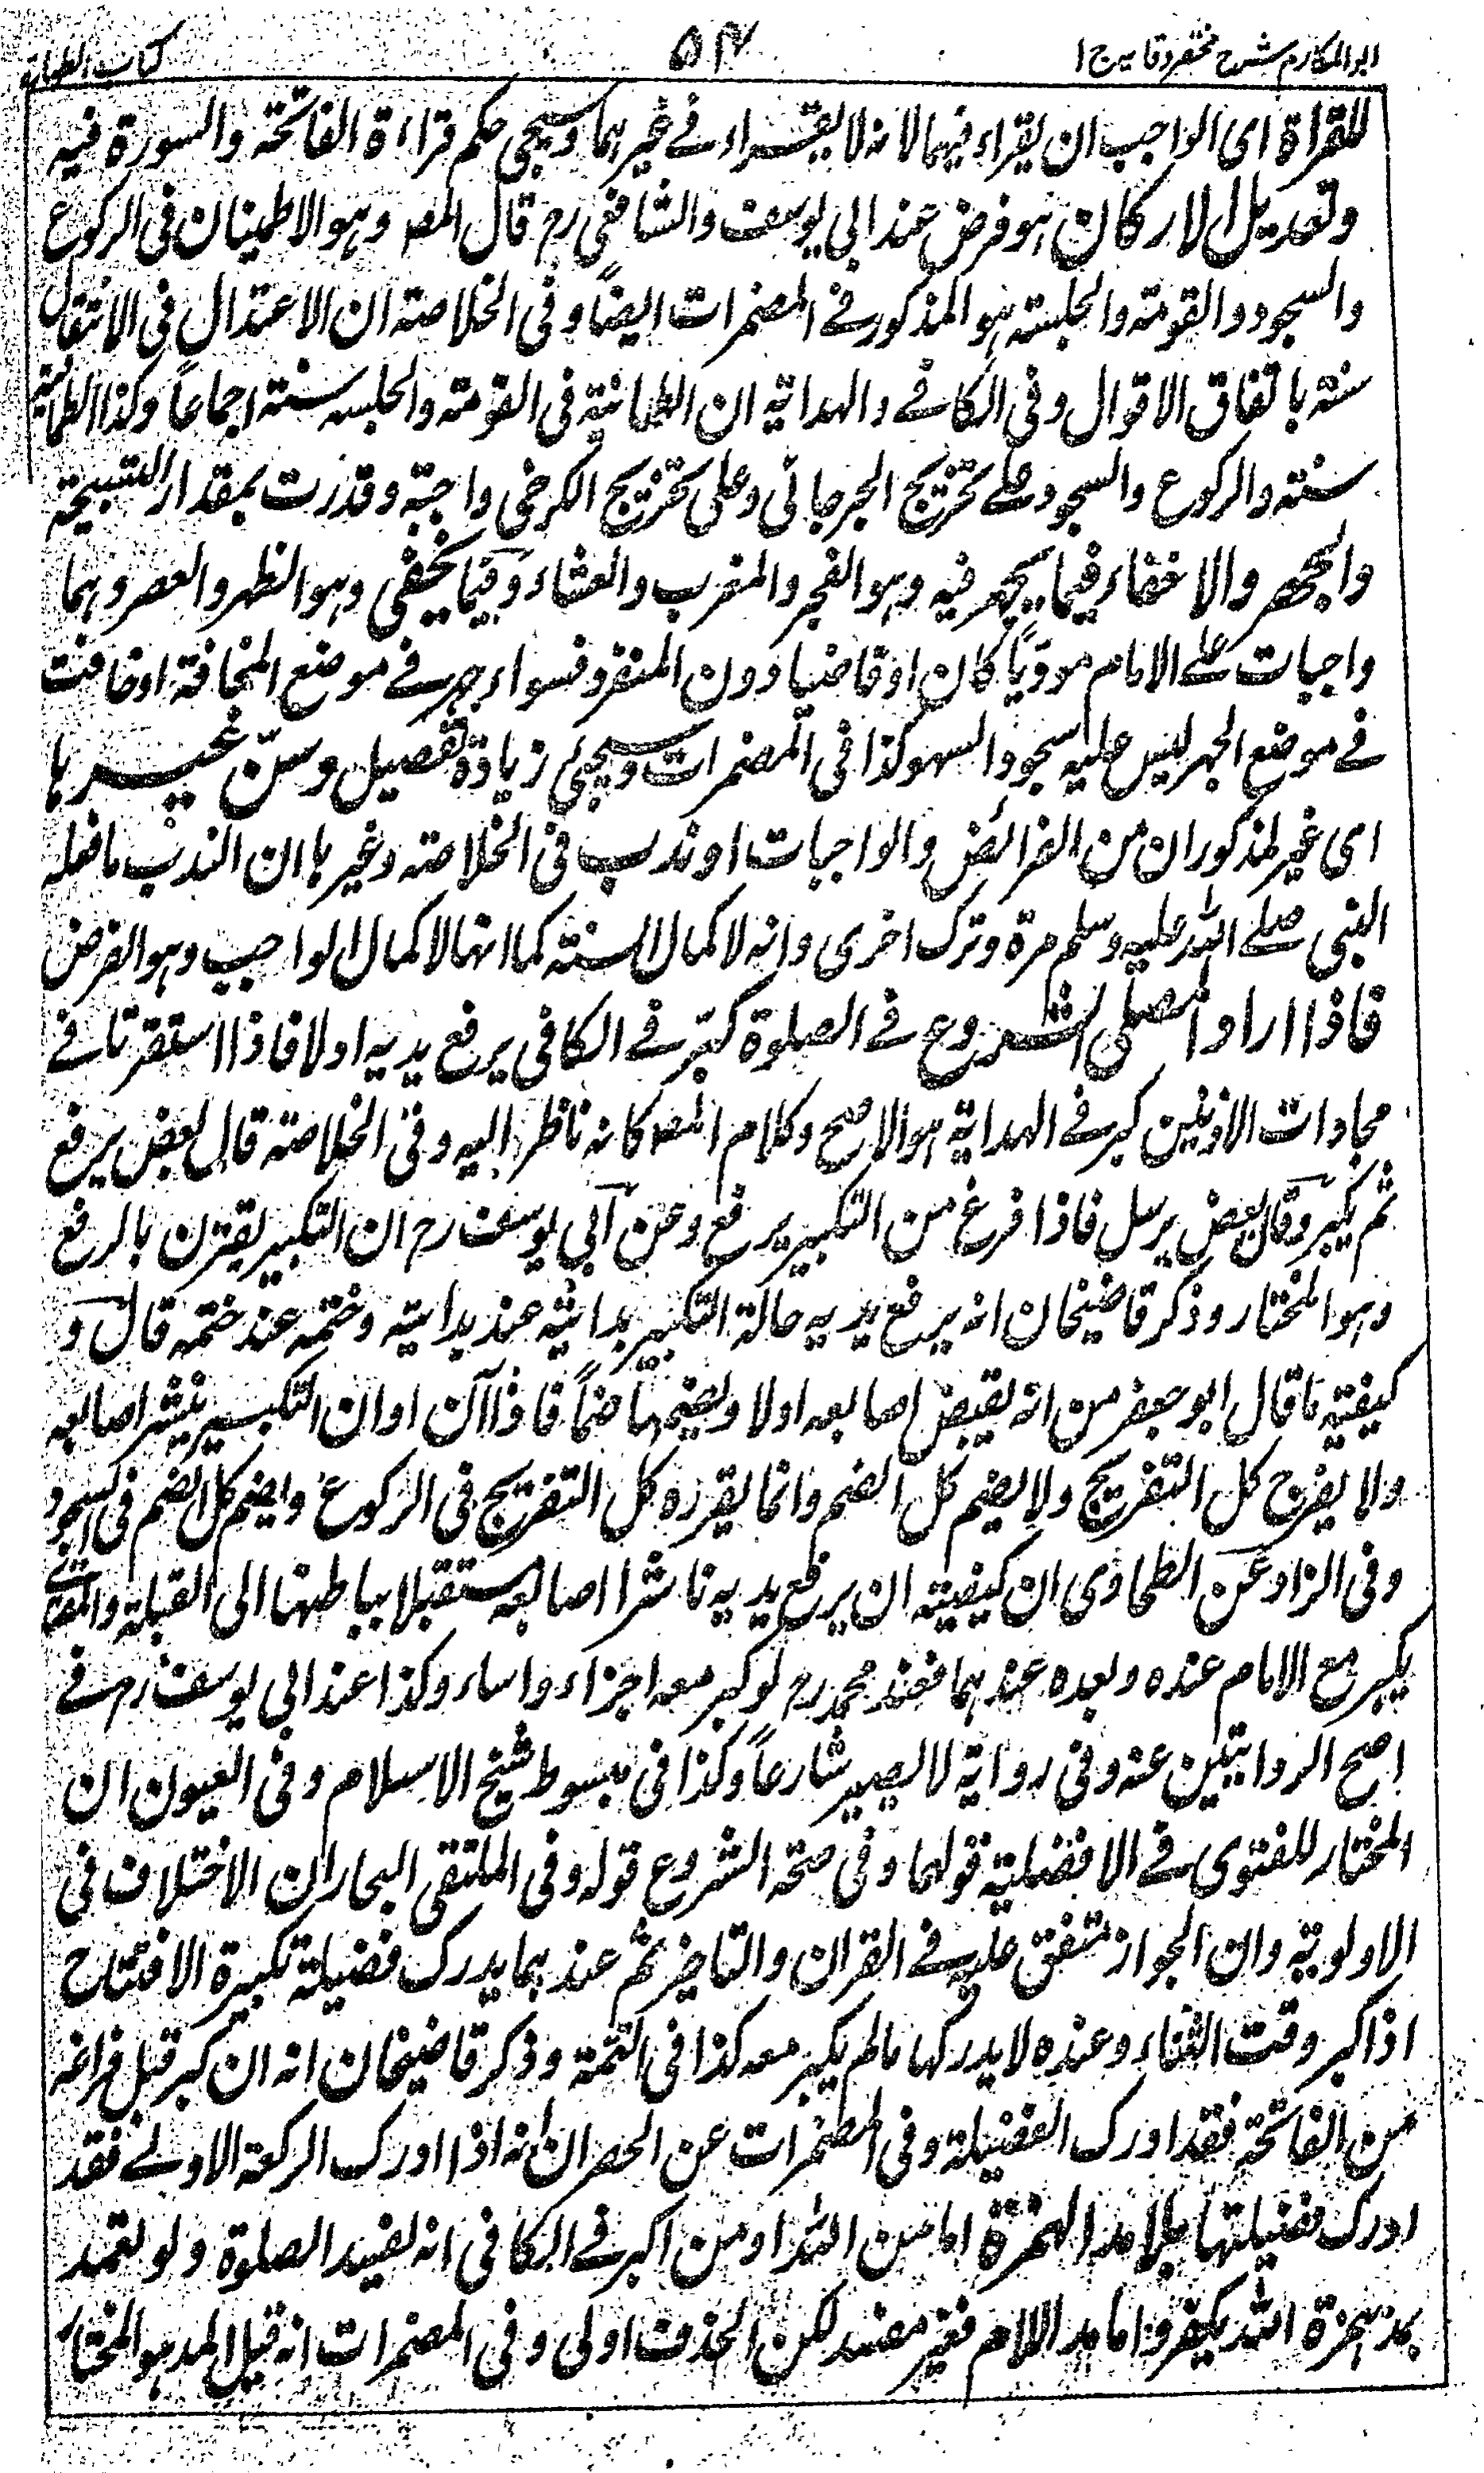 ابو المکارم شرح مختصر وقایہ ج ا
۵۴
کتاب الطہارۃ
للقراة اى الواجب ان يقراء فيهما لانه لا يقراء فے غيرهما وسيجى حكم قراءة الفاتحة والسورة فيه
وتعديل الاركان هو فرض عند ابى يوسف والشافعى رح قال المصـ وهو الاطمينان فى الركوع
والسجود والقومة والجلسة هو المذكور فے المضمرات ايضًا وفى الخلاصة ان الاعتدال فى الانتقال
سنة باتفاق الاقوال وفى الكافے والهداية ان الطمانية فى القومة والجلسه سنة اجماعا وكذا الطمانية
سنة والركوع والسجود علے تخريج الجرجانى وعلى تخريج الكرخى واجبة وقدرت بمقدار التسبيحة
والجهر والاخفاء فيما يجهر فيه وهو الفجر والمغرب والعشاء وفيما يخفى وهو الظهر والعصر وهما
واجبات علے الامام موديًا كان او قاضيا دون المنفرد فسواء جهر فے موضع المخافة او خافت
فے موضع الجهر ليس عليه سجود السهو كذا فى المضمرات وسيجئ زيادة تفصيل وسنّ غيرها
اى غير لمذكوران من الفرائض والواجبات او ندب فى الخلاصة وغيرها ان الندب ما فعله
النبى صلے الله عليه وسلم مرة وترك اخرى وانه لاكمال السنة كما انها لاكمال الواجب وهو الفرض
فاذا اراد المصلى الشروع فے الصلوة كبّر فے الكافى يرفع يديه اولا فاذا استقرتا فے
محاذات الاذنين كبر فے الهداية هو الاصح وكلام المصـ كانه ناظر اليه وفى الخلاصة قال بعض يرفع
ثم يكبر وقال بعض يرسل فاذا فرغ من التكبير يرفع وعن أبى يوسف رح ان التكبير يقترن بالرفع
وهو المختار وذكر قاضيخان انه يرفع يديه حالة التكبير بدايته عند بدايته وختمه عند ختمه قال و
كيفيته ما قال ابو جعفر من انه يقبض اصابعه اولا ويضمها ضمًا فاذا آن اوان التكبير ينشر اصابعه
ولا يفرج كل التفريج ولا يضم كل الضم وانما يقرره كل التفريج فى الركوع ويضم كل الضم فى السجود
وفى الزاد عن الطحاوى ان كيفيته ان يرفع يديه ناشرا اصابعه مستقبلا بباطنها الى القبلة والمقتدے
يكبر مع الامام عنده وبعده عندهما فعند محمد رح لو كبر معه اجزاء واساء وكذا عند ابى يوسف رح فے
اصح الروايتين عنه وفى رواية لا يصير شارعًا وكذا فى مبسوط شيخ الاسلام وفى العيون ان
المختار للفتوى فے الافضلية قولهما وفى صحة الشروع قوله وفى الملتقى البحار ان الاختلاف فى
الاولوية وان الجواز متفق عليه فے القران والتاخير ثم عندهما يدرك فضيلة تكبيرة الافتتاح
اذا كبر وقت الثناء وعنده لا يدركها مالم يكبر معه كذا فى التتمة وذكر قاضيخان انه ان كبر قبل فراغه
من الفاتحة فقد ادرك الفضيلة وفى المضمرات عن الحصر ان انه اذا ادرك الركعة الاولے فقد
ادرك فضيلتها بلا مد الهمزة اما من الله او من اكبر فے الكافى انه لفيسد الصلوة ولو تعمد
بمد همزة الله يكفر واما مد اللام فغير مفسد لكن الحذف اولى وفى المضمرات انه قيل المد هو المختار